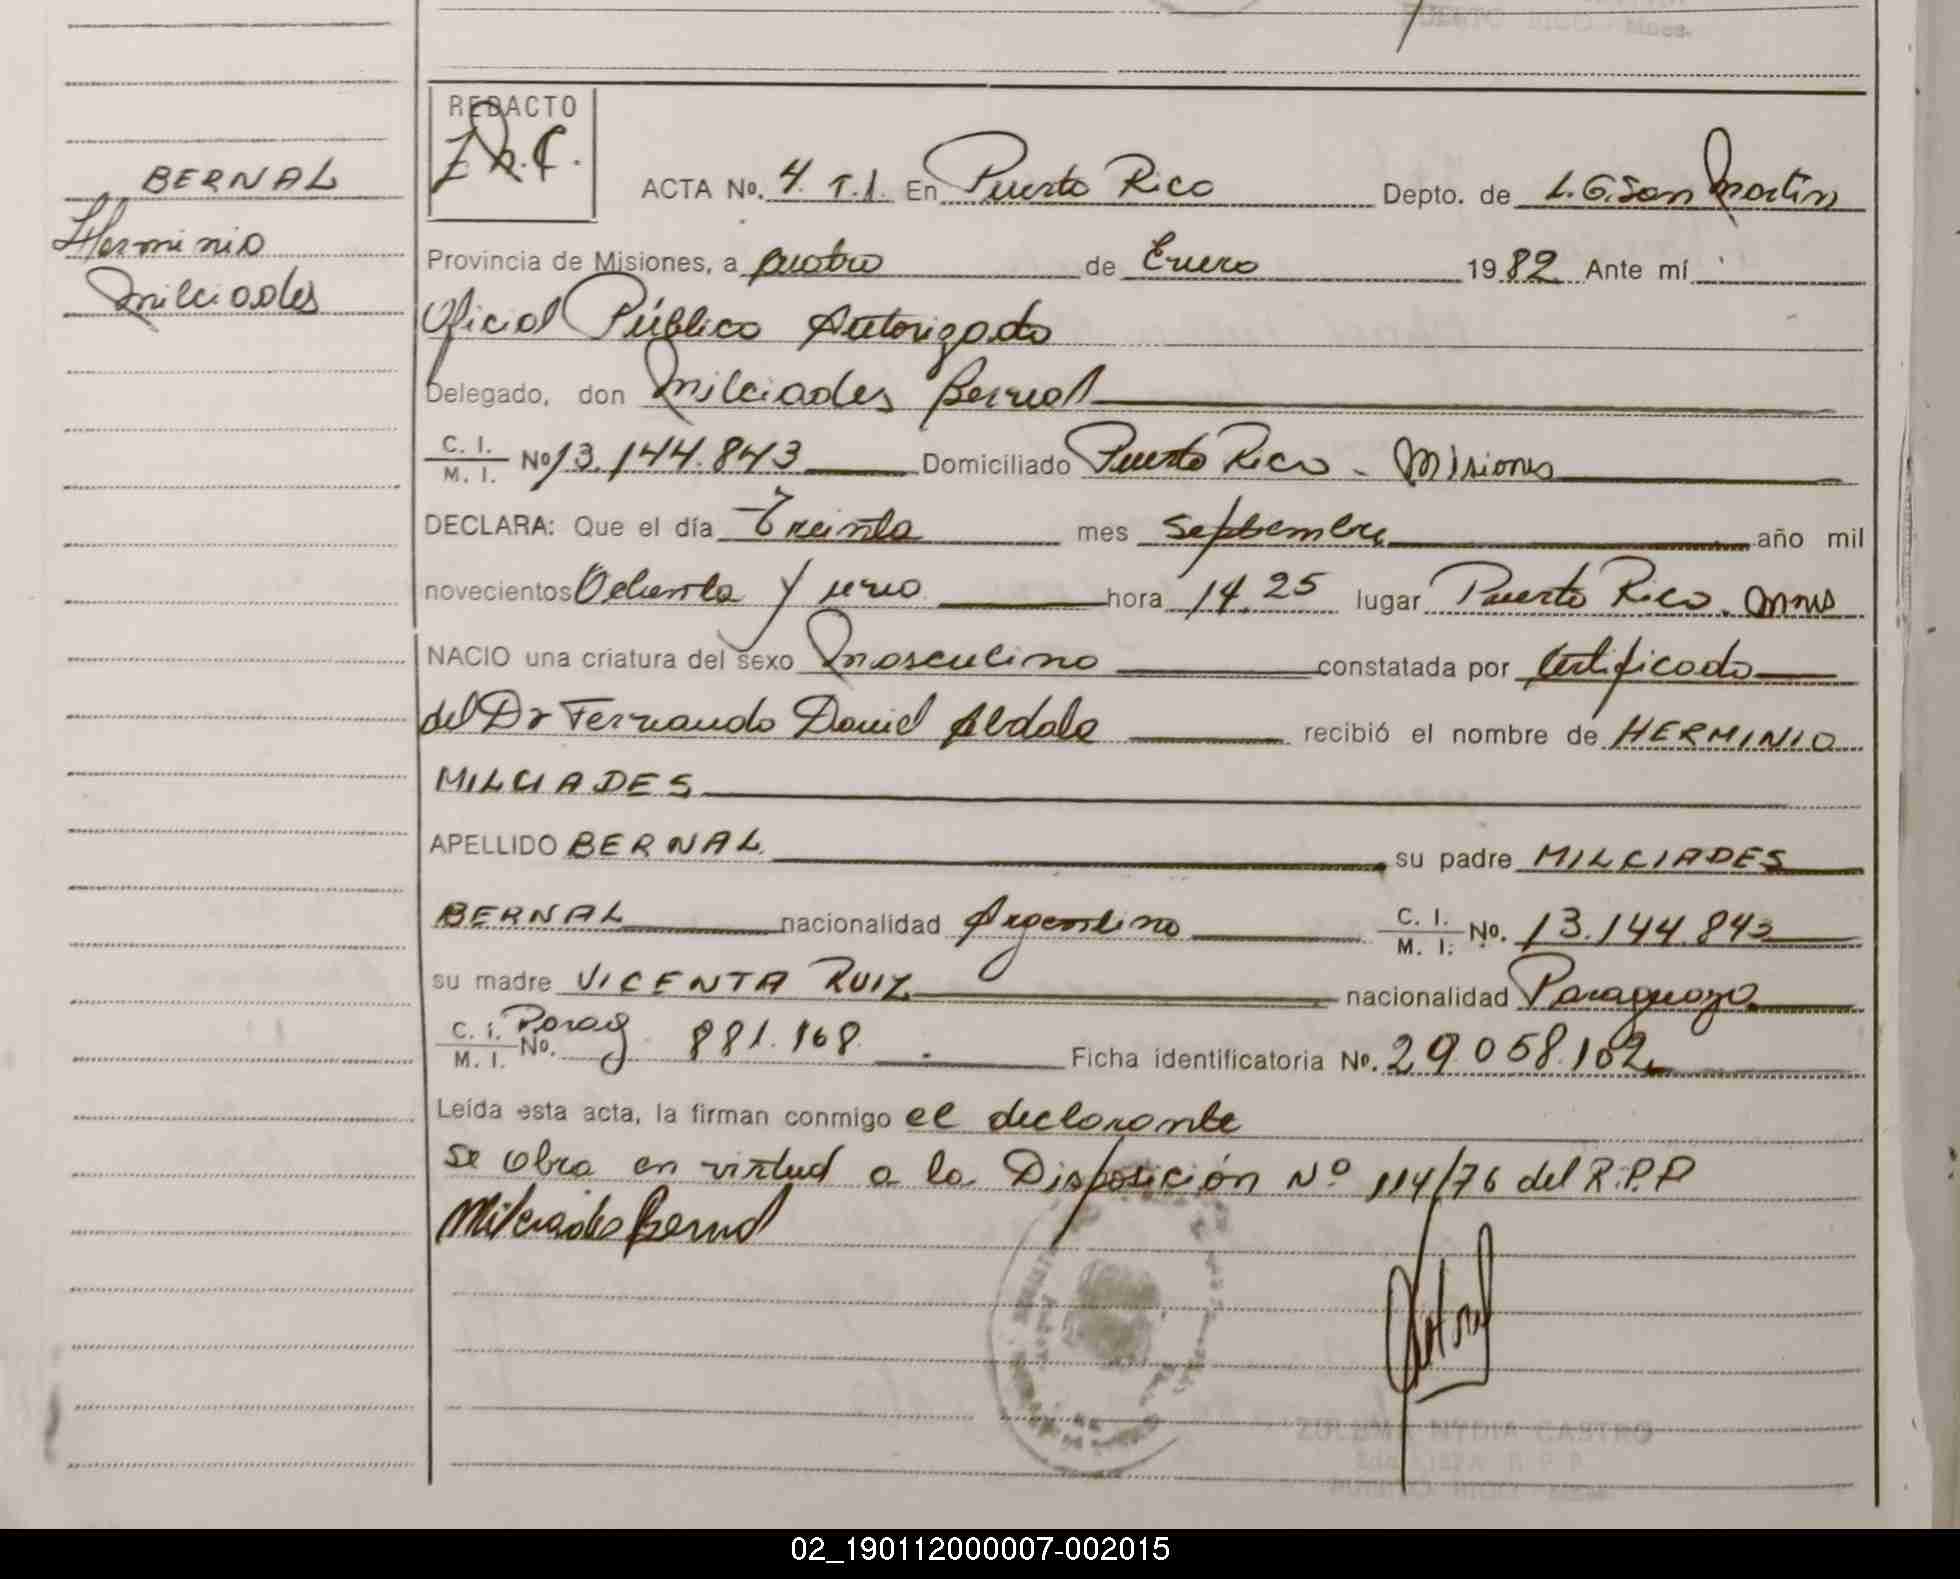 PUERTO RICO Mnes.
REDACTO
BERNAL
Herminio
Milciades
ACTA No. 4 T.I. En Puerto Rico Depto. de L.G.San Martín
Provincia de Misiones, a cuatro de Enero 1982 Ante mí
Oficial Público Autorizado
Delegado, don Milciades Bernal
C. I. M. I. Nº 13.144.843 Domiciliado Puerto Rico - Misiones
DECLARA: Que el día Treinta mes Septiembre año mil
novecientos Ochenta y uno hora 14.25 lugar Puerto Rico. Mnes
NACIO una criatura del sexo Masculino constatada por Certificado
del Dr Fernando Daniel recibió el nombre de HERMINIO
MILCIADES
APELLIDO BERNAL su padre MILCIADES
BERNAL nacionalidad Argentino C. I. M. I. No. 13.144.843
su madre VICENTA RUIZ nacionalidad Paraguaya
C. I. M. I. No. Parag 881.168 Ficha identificatoria No. 29.058.102
Leída esta acta, la firman conmigo el declarante
se obra en virtud a la Disposición Nº 114/76 del R.P.P
Milciades Bernal
ZULEMA NYDIA CASTRO
PUERTO RICO
02_190112000007-002015